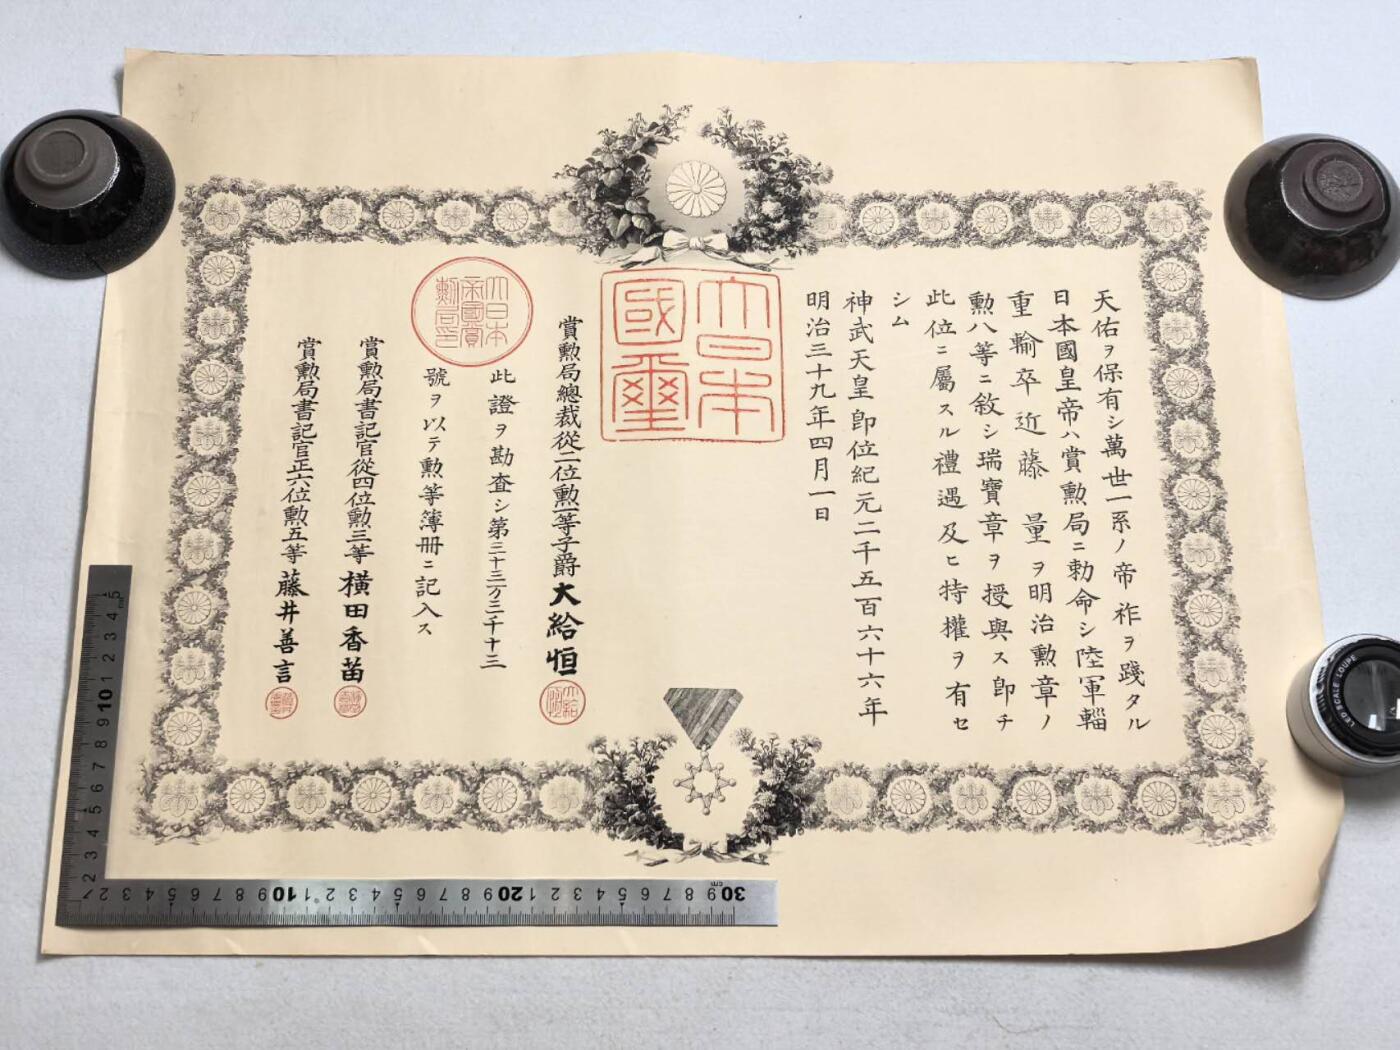 天佑ヲ保有シ萬世一系ノ帝祚ヲ踐タル
日本國皇帝ハ賞勲局ニ勅命シ陸軍輜
重輸卒近藤量ヲ明治勲章ノ
勲八等ニ敘シ瑞寶章ヲ授與ス即チ
此位ニ屬スル禮遇及ヒ特權ヲ有セ
シム
神武天皇即位紀元二千五百六十六年
明治三十九年四月一日
大日本
國璽
賞勲局總裁從二位勲一等子爵大給恒
此證ヲ勘査シ第三十三万三千十三
號ヲ以テ勲等簿冊ニ記入ス
大日本
帝國賞
勲局印
賞勲局書記官從四位勲三等橫田香苗
賞勲局書記官正六位勲五等藤井善言
LED SCALE LOUPE
2 3 4 5 6 7 8 9 10 1 2 3 4 5
cm
2 3 4 5 6 7 8 9 10 1 2 3 4 5 6 7 8 9 20 1 2 3 4 5 6 7 8 9 30
cm